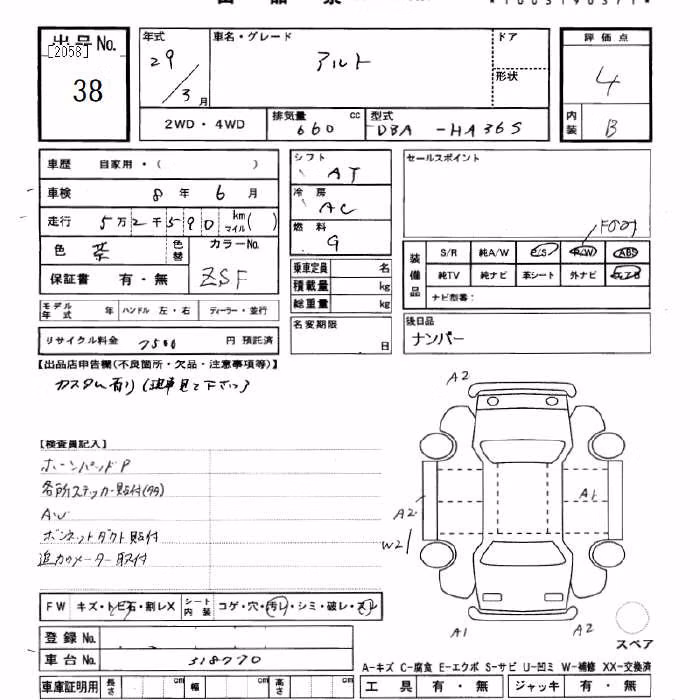 出品No.
[2058]
38
年式
29
3月
車名・グレード
アルト
ドア
形状
評価点
4
内装
B
2WD・4WD
排気量 cc
660
型式
DBA -HA36S
車歴 自家用・( )
車検 8年 6月
走行 5万2千590 km マイル( )
色
色替
カラーNo.
ZSF
保証書 有・無
モデル年式 年 ハンドル 左・右 ディーラー・並行
リサイクル料金 円 預託済
シフト
AT
冷房
AC
燃料
G
乗車定員 名
積載量 kg
総重量 kg
名変期限
日
セールスポイント
装備品
S/R 純A/W P/S P/W ABS
純TV 純ナビ 革シート 外ナビ エアB
ナビ型番:
後日品
ナンバー
【出品店申告欄(不良箇所・欠品・注意事項等)】
カスタム有り(現車見て下さい)
【検査員記入】
ホーンパッドP
各所ステッカー貼付(多)
AW
ボンネットダクト貼付
追加メーター取付
A2
A1
A2
W2
A1
A2
スペア
FW キズ・トビ石・割レX シート内装 コゲ・穴・汚レ・シミ・破レ・スレ
登録No.
車台No. 318770
A-キズ C-腐食 E-エクボ S-サビ U-凹ミ W-補修 XX-交換済
車庫証明用 長さ cm 幅 cm 高さ cm
工具 有・無 ジャッキ 有・無